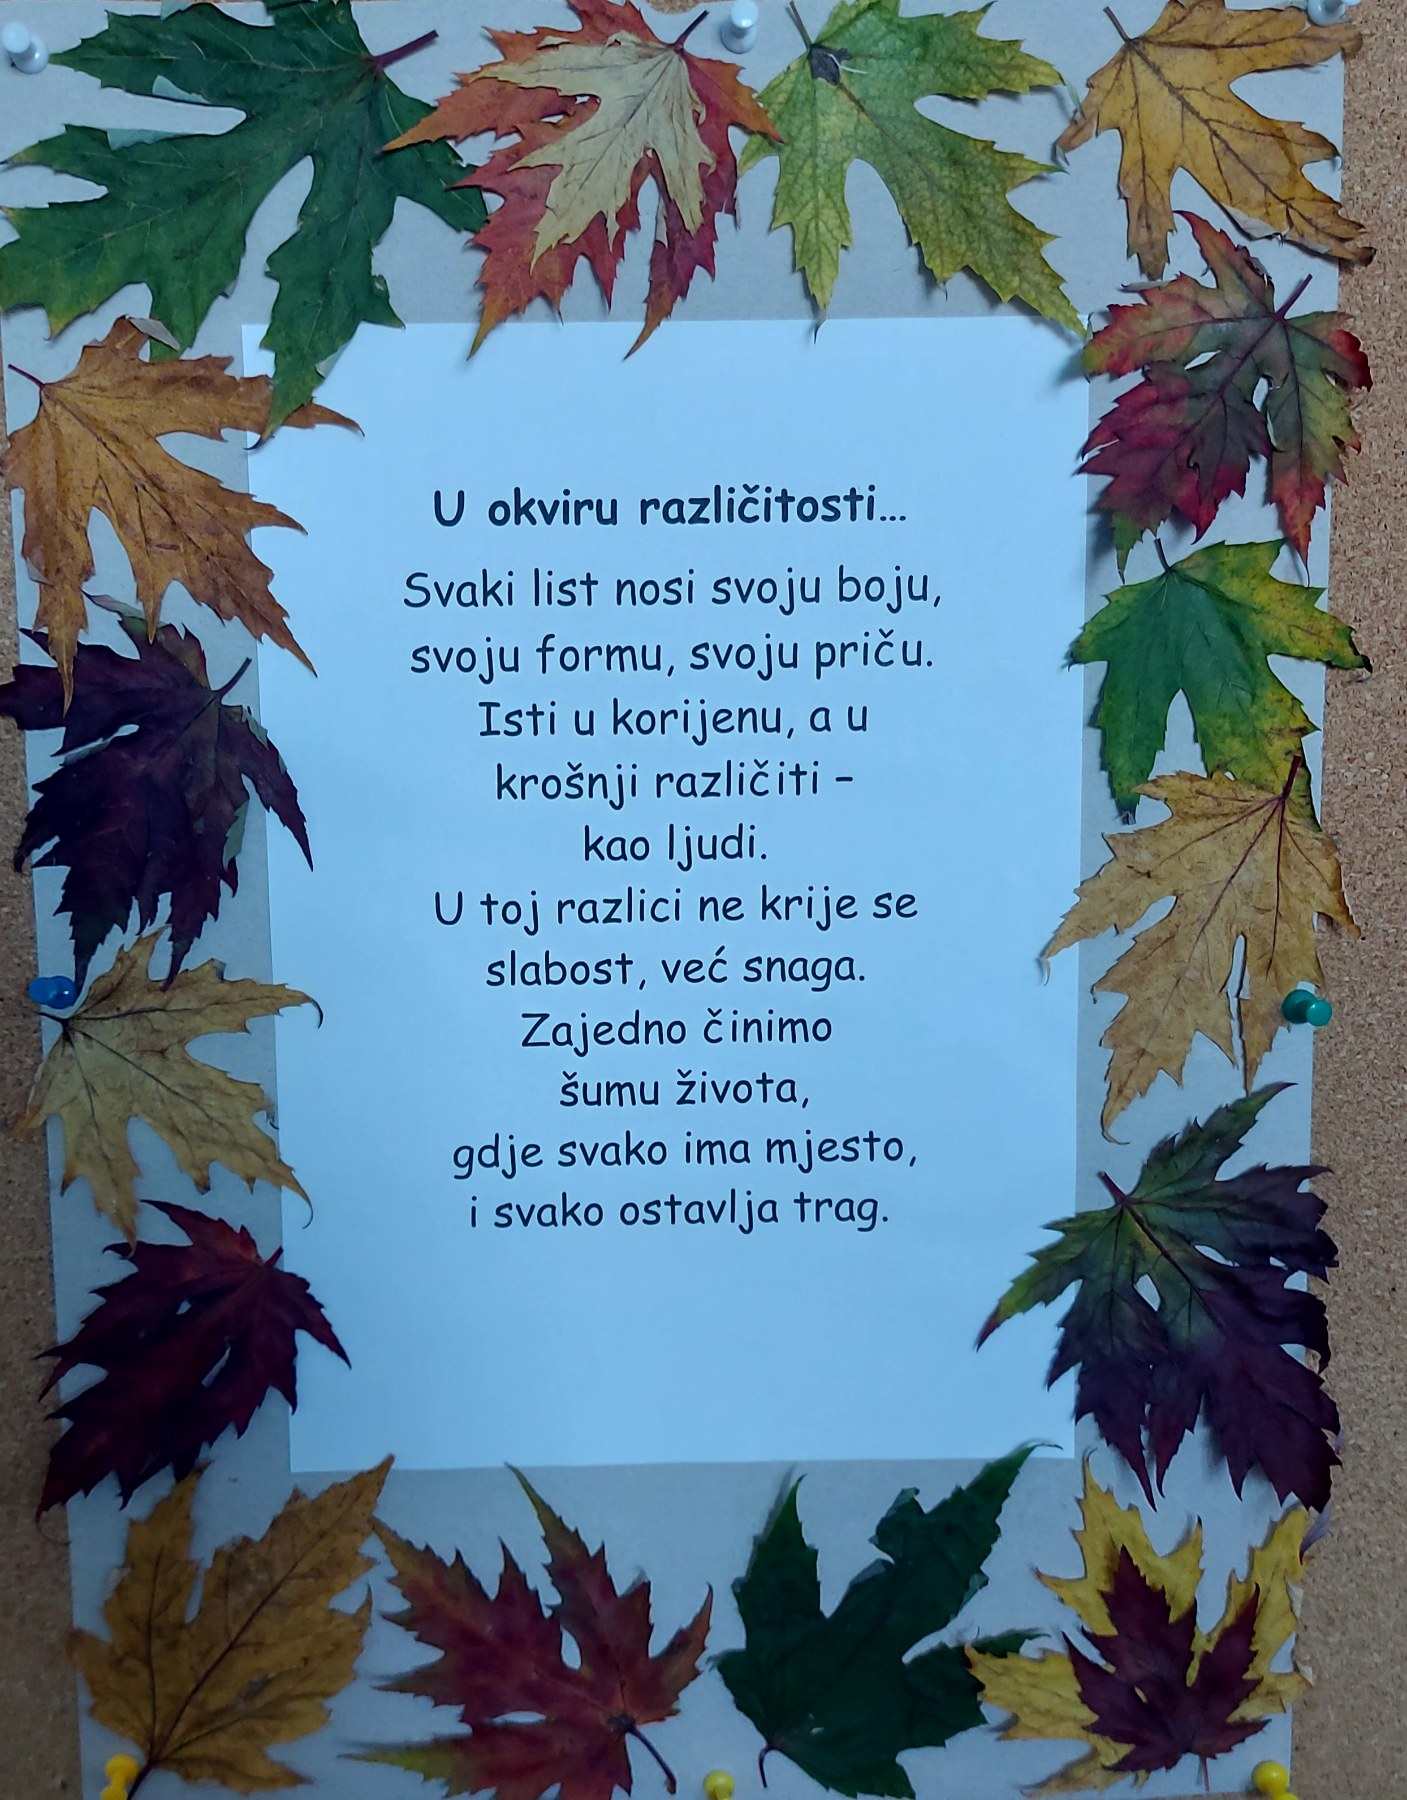 U okviru različitosti...
Svaki list nosi svoju boju,
svoju formu, svoju priču.
Isti u korijenu, a u
krošnji različiti –
kao ljudi.
U toj razlici ne krije se
slabost, već snaga.
Zajedno činimo
šumu života,
gdje svako ima mjesto,
i svako ostavlja trag.